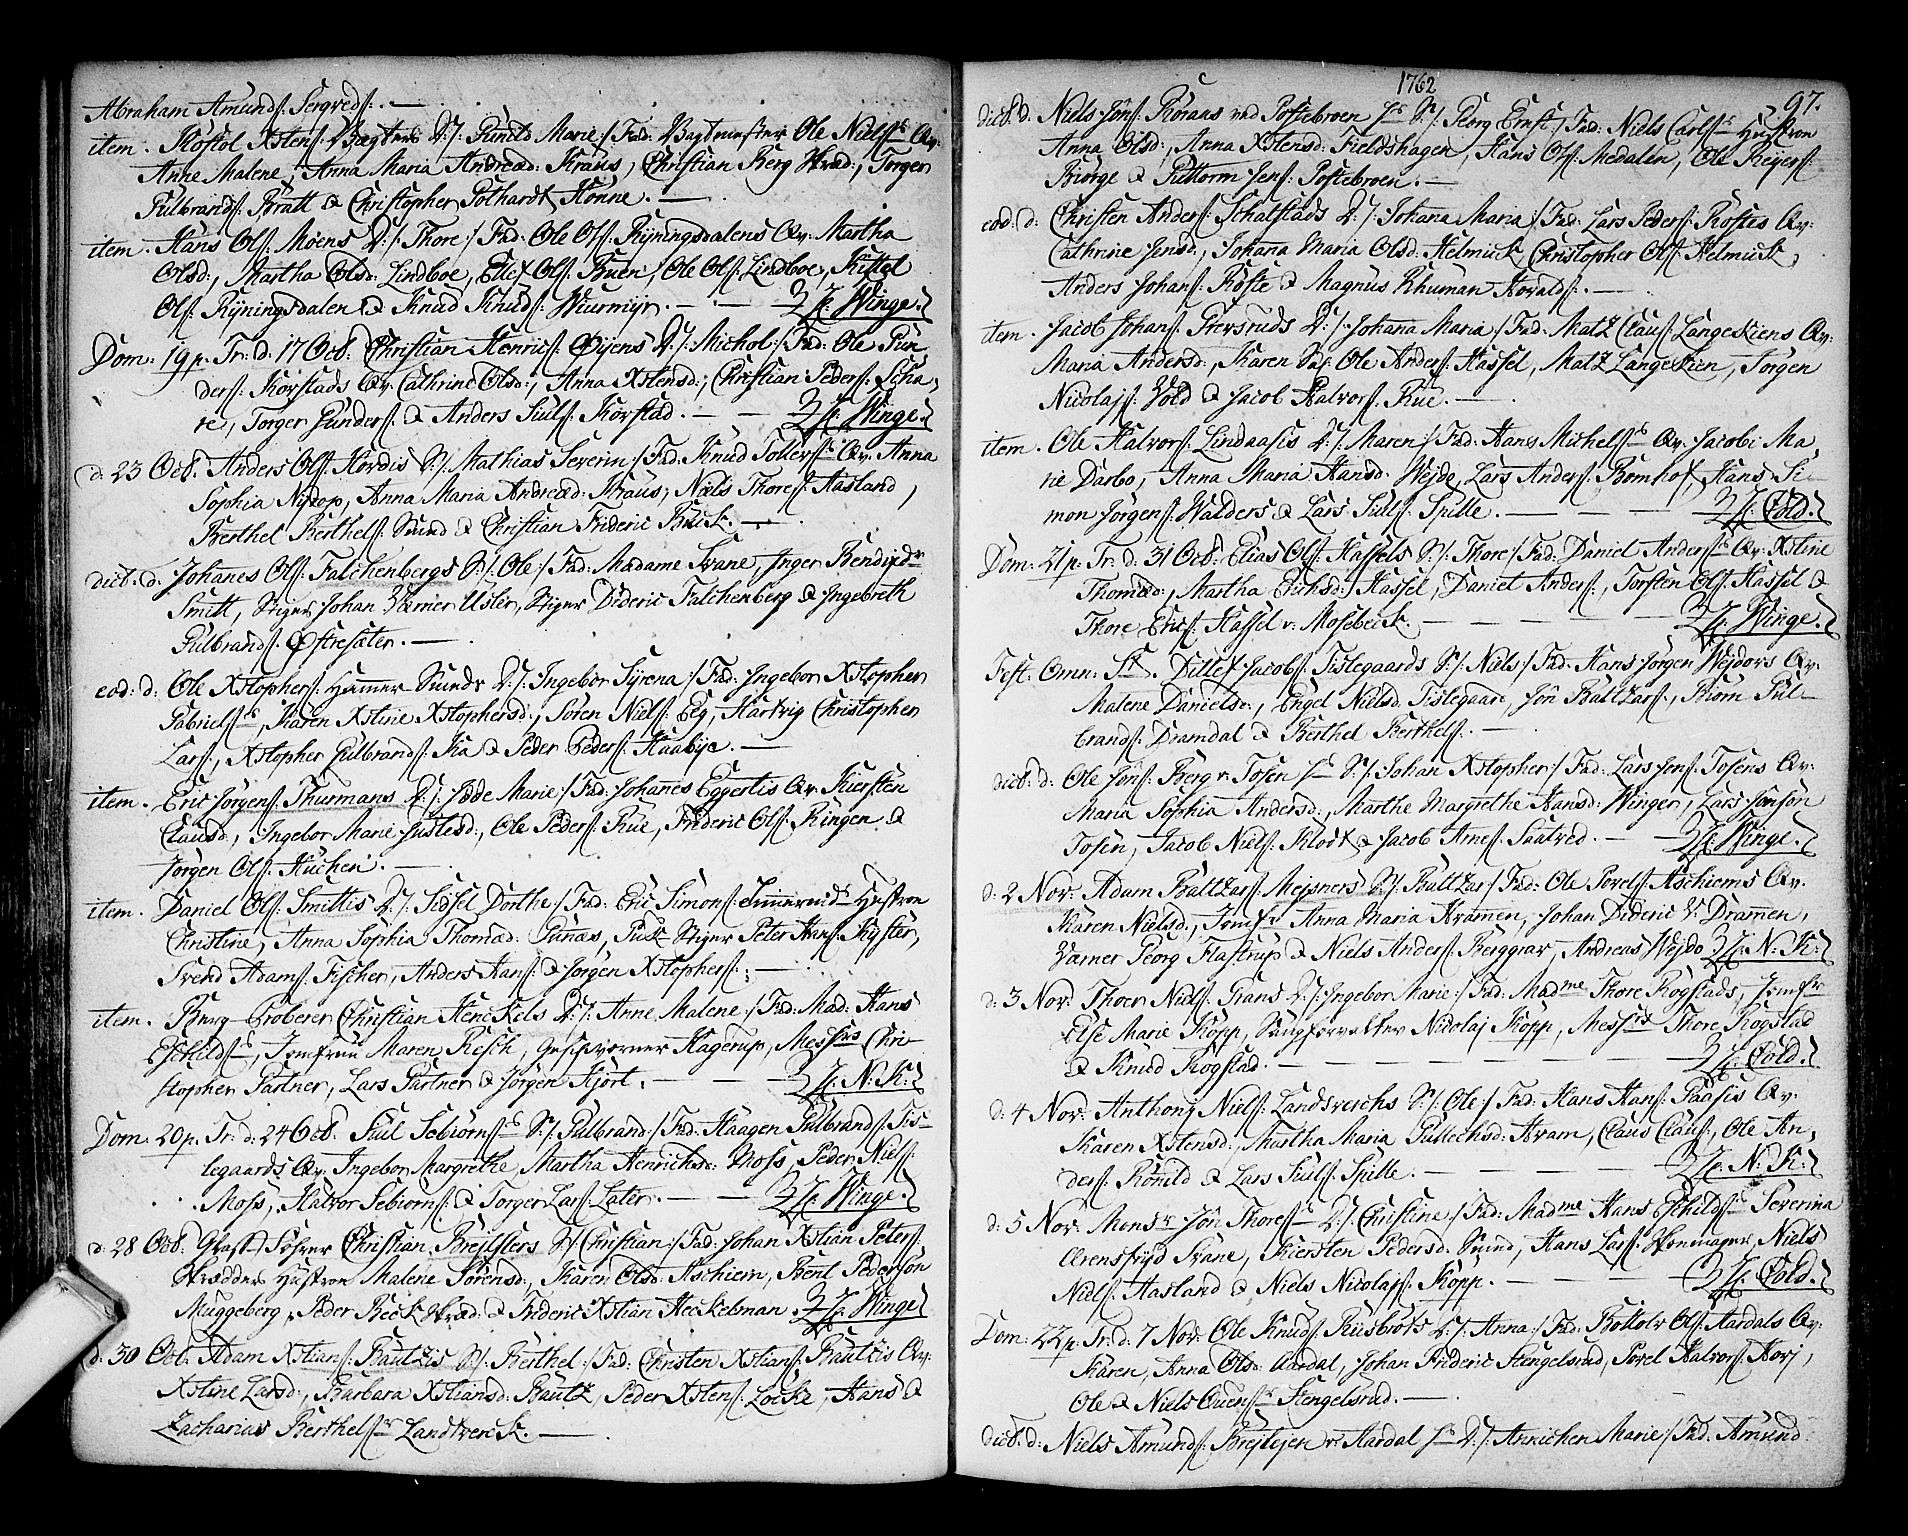 Abraham Amunds: Sergveds: —
item. Kostol Xstens: Vægters D:/: Gunild Marie:/ Fad: Vagtmester Ole Niels: Qv:
Anne Malene, Anna Maria Andreæd: Kraus, Christian Berg Skræd:, Torger
Gulbrands: Bratt & Christopher Gothardt Hönne. —
item. Hans Ols: Moens D:/. Thore:/ Fad: Ole Ols: Ryningsdalens Qv: Martha
Olsd:, Martha Olsd: Lindboe, Ellef Ols: Buen, Ole Ols: Lindboe, Kittel
Ols: Ryningsdalen & Knud Knuds: Wurmyr. — — Hr: Winge.
Dom: 19 p. Tr: d: 17 Octb: Christian Henrics: Øyens D:/. Michol:/ Fad: Ole Gun
ders: Korstads Qv: Cathrine Olsd:, Anna Xstensd:, Christian Peders: Scha,
re, Torger Gunders: & Anders Juuls: Korstad. — — Hr: Winge.
d: 23 Octb: Anders Ols: Hordis S:/. Mathias Severin:/ Fad: Knud Tollers: Qv: Anna
Sophia Nyrop, Anna Maria Andreæd: Kraus, Niels Thores: Aasland,
Berthel Berthels: Smed & Christian Frideric Buck. —
dict. d: Johanes Ols: Falchenbergs S:/. Ole:/ Fad: Madame Svane, Inger Bendixdr
Smitt, Stiger Johan Værner Usler, Stiger Dideric Falchenberg & Ingebreth
Gulbrands: Østresäter. —
eod: d: Ole Xstophers: Hammer Smeds D:/. Ingebor Syrena:/ Fad: Ingebor Xstopher
Gabriels:, Karen Xstine Xstophersd:, Sören Niels: Eeg, Hartvig Christopher
Lars:, Xstopher Gulbrands: Kia & Peder Peders: Haabye. —
item. Eric Jörgens: Thurmans D:/. Jdde Marie:/ Fad: Johanes Eggertis Qv: Kiersten
Clausd:, Ingebor Marie Justesd:, Ole Peders: Rue, Frideric Ols: Ringen &
Jörgen Ols: Kuchen. —
item. Daniel Ols: Smittis D:/. Sidsel Dorthe:/ Fad: Eric Simons: Hustron
Christine, Anna Sophia Thomæd: Gunäs, Stiger Peter Hans: Kyster,
Svend Adams: Fischer, Anders Hans: & Jörgen Xstophers: —
item. Berg Proberer Christian Henckels D:/: Anne Malene:/ Fad: Mad: Hans
Eschilds:, Jomfrue Maren Resch, Geschworner Hagerup, Messrs Chri-
stopher Gartner, Lars Gartner & Jörgen Hjort. — — Hr: N: K:
Dom: 20 p. Tr: d: 24 Octb: Juul Sebiörns: S:/. Gulbrand:/ Fad: Haagen Gulbrands: Tis-
legaards Qv: Ingebor Margrethe, Martha Henrichsd: Moss, Peder Niels:
Moss, Halvor Sebiorns: & Torger Lars: Later. — — Hr: Winge.
d: 28 Octb: Glass Christian Brejtsters S:/. Christian:/ Fad: Johan Xstian Peters:
Skrædder Hustron Malene Sörensd:, Karen Olsd: Aschiem, Bent Pedersön
Muggeberg, Peder Beck Skræd: & Frideric Xstian Heckelman. Hr: Winge
d: 30 Octb: Adam Xstians: Bautzis S:/. Berthel:/ Fad: Christen Xstians: Bautzis Qv:
Xstine Larsd:, Barbara Xstiansd: Bautz, Peder Xstens: Locke, Hans &
Zacharias Berthels: Landverck. —
1762
97.
dict. d. Niels Jöns: Körans ved Gostebroen S:/. Georg Ernst:/ Fad: Niels Carls: Hustron
Anna Olsd:, Anna Xstensd: Fieldshagen, Hans Ols: Medalen, Ole Reyers:
Biörge & Guttorm Jens: Gostebroen. —
eod: d: Christen Anders: Schalstads D:/. Johana Maria:/ Fad: Lars Peders: Kostes Qv:
Cathrine Jensd:, Johana Maria Olsd: Helmuck, Christopher Ols: Helmuck,
Anders Johans: Köste & Magnus Rhuman Hovalds: —
item. Jacob Johans: Grevsruds D:/. Johana Maria:/ Fad: Matz Claus: Langeskiens Qv:
Maria Andersd:, Karen Sal: Ole Anders: Hassel, Matz Langeskien, Jörgen
Nicolajs: Vold & Jacob Halvors: Rue. —
item. Ole Halvors: Lindaasis D:/. Maren:/ Fad: Hans Michels: Qv: Jacobi Ma
rie Darbo, Anna Maria Hansd: Wejde, Lars Anders: Bomhof, Hans Si-
mon Jörgens: Walders & Lars Juls: Spille. — — — Hr: Cold.
Dom: 21 p. Tr: d: 31 Octb: Elias Ols: Hassels S:/. Thore:/ Fad: Daniel Anders: Qv: Xstine
Thomæd:, Martha Erichsd: Hassel, Daniel Anders:, Torsten Ols: Hassel &
Thore Erics: Hassel v: Mosebeck. — — — — — Hr: Winge.
Fest: Omn: St. Ditlef Jacobs: Tislegaards S:/. Niels:/ Fad: Hans Jörgen Wejdors Qv:
Malene Danielsd:, Engel Nielsd: Tislegaard, Jön Baltzars:, Thom Gul-
brands: Dramdal & Berthel Berthels: —
dict: d: Ole Jöns: Berg v: Tosen S:/. Johan Xstopher:/ Fad: Lars Jens: Tosens Qv:
Maria Sophia Andersd:, Marthe Margrethe Hansd: Winger, Lars Jönsön
Tosen, Jacob Niels: Klodt & Jacob Arnes: Saatved. — — Hr: Winge.
d: 2 Nov: Adam Baltzars: Mejsners S:/. Baltzar:/ Fad: Ole Povels: Aschiems Qv:
Karen Nielsd:, Jomfr Anna Maria Kramen, Johan Dideric V: Dramen,
Varner Georg Flastrup & Niels Anders: Berggrav, Andreas Wejdo Hr: N: K:
d: 3 Nov: Thoer Niels: Grans D:/. Ingebor Marie:/ Fad: Madme Thore Rogstads, Jomfr
Else Marie Kopp, Sangforvalter Nicolaj Kopp, Messrs Thore Rogstad
& Knud Rogstad. — — — — — — — Hr: Cold.
d: 4 Nov: Anthonj Niels: Landsverchs S:/. Ole:/ Fad: Hans Hans: Gaasis Qv:
Karen Xstensd:, Martha Maria Gullechsd: Kram, Claus Claus:, Ole An,
ders: Rönild & Lars Juuls: Spille. — — — — Hr: N: K:
d: 5 Nov: Monsr Jön Thores: D:/. Christine:/ Fad: Madme Hans Eschilds: Severina
Arensfryd Svane, Kiersten Pedersd: Smed, Hans Lars: Skomager, Niels
Niels: Aasland & Niels Nicolajs: Kopp. — — — — Hr: Cold.
Dom: 22 p. Tr: d: 7 Nov: Ole Knuds: Riisbröts D:/. Anna:/ Fad: Bottolv Ols: Aardals Qv:
Karen, Anna Olsd: Aardal, Johan Frideric Stengelsrud, Povel Halvors: Horj,
Ole & Niels Ouens: Stengelsrud. —
dict: d: Niels Amunds: Brejlejen v: Aardal D:/. Annichen Marie:/ Fad: Amund